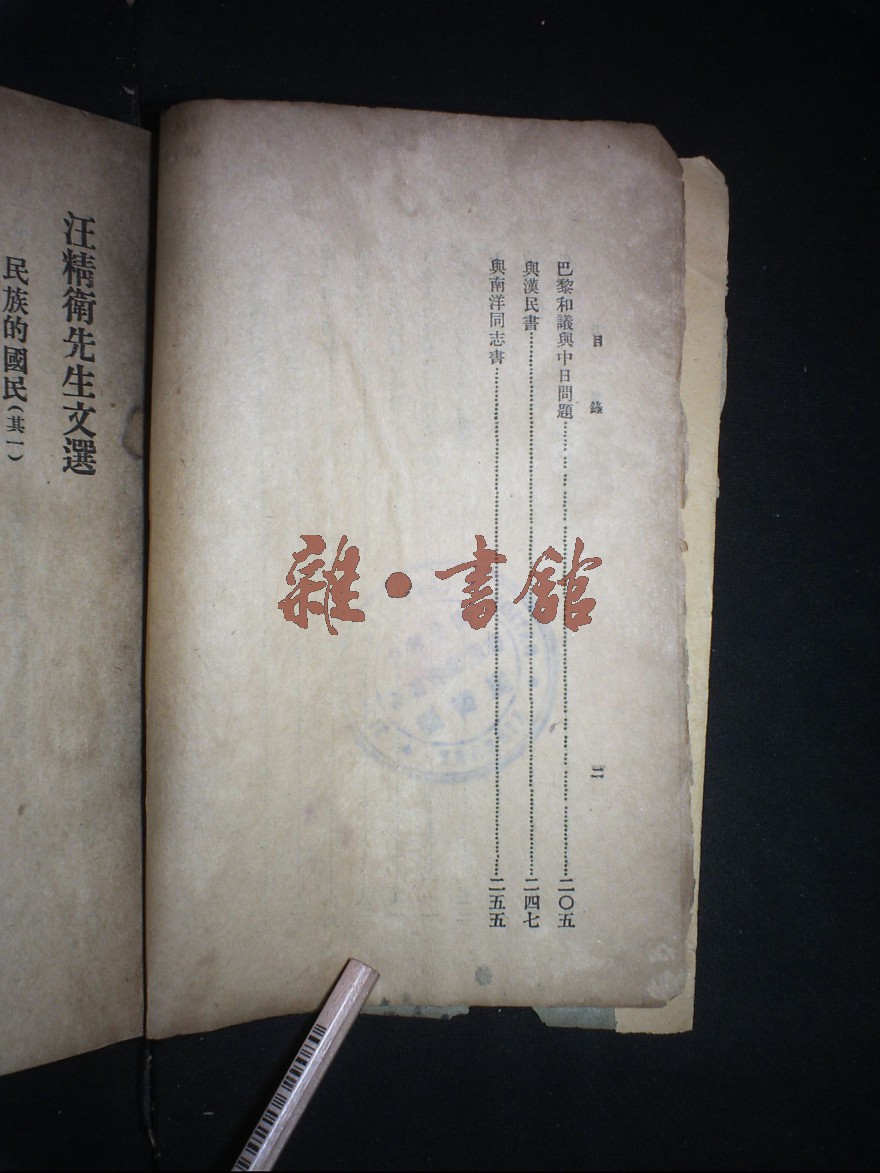 目錄
二
巴黎和議與中日問題……二〇五
與漢民書……二四七
與南洋同志書……二五五
汪精衛先生文選
民族的國民(其一)
雜·書館